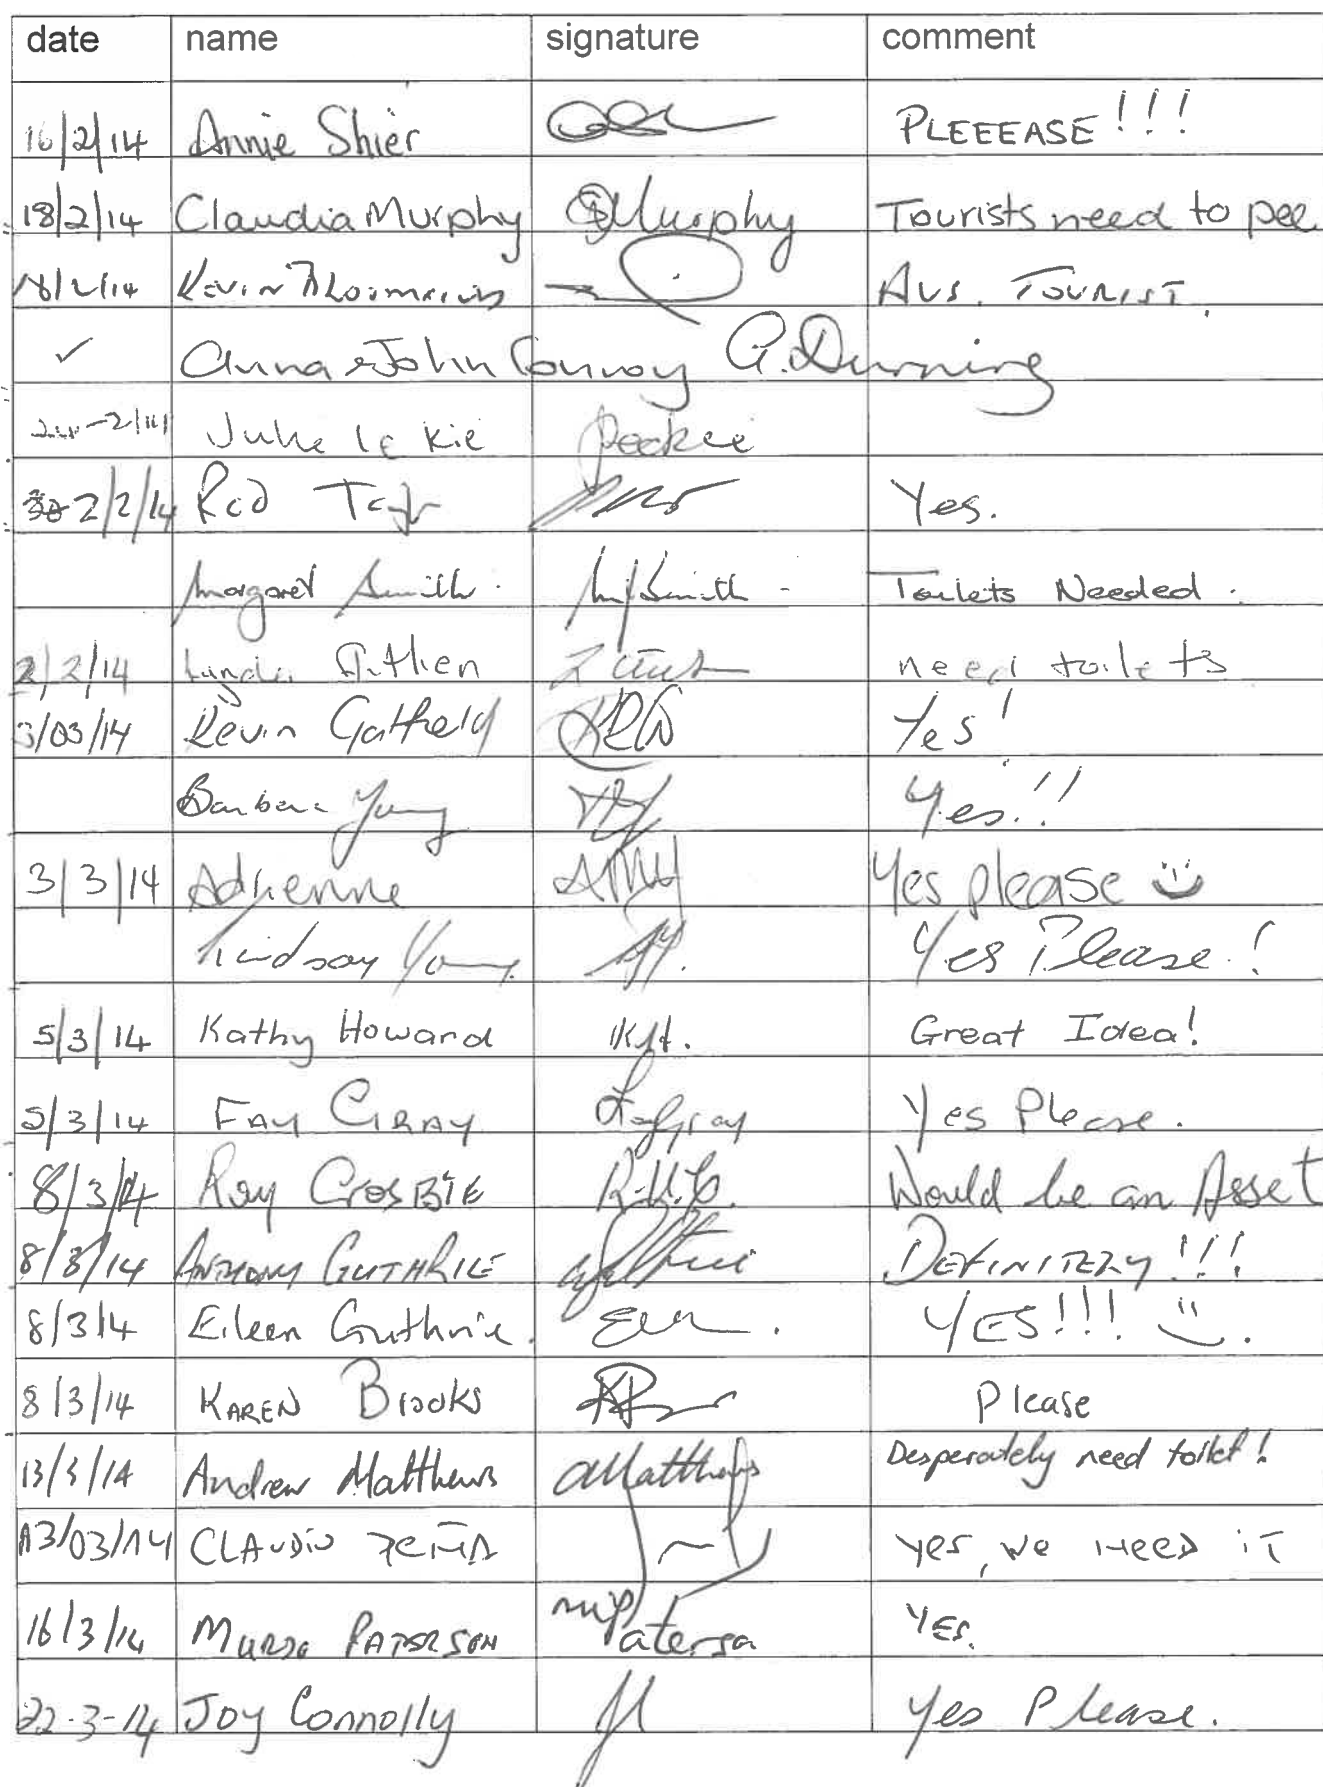 date name signature comment
16/2/14 Annie Shier PLEEEASE!!!
18/2/14 Claudia Murphy Murphy Tourists need to pee
18/2/14 Kevin AUS. TOURIST.
✓ Anna & John Conroy G. Durning
Julie
2/2/14 Rod Yes.
Margaret Smith. Smith - Toilets Needed.
2/2/14 Linda need toilets
3/03/14 Kevin Gatfield KRG Yes!
Barbara Young Yes!!
3/3/14 Adrienne Yes please ☺
Lindsay Young Yes Please!
5/3/14 Kathy Howard KJH. Great Idea!
5/3/14 FAY GRAY Fay Gray Yes Please.
8/3/14 Ray CrosBIE Would be an Asset
8/3/14 ANTHONY GUTHRIE DEFINITELY!!!
8/3/14 Eileen Guthrie. YES!!! ☺.
8/3/14 KAREN Brooks Please
13/3/14 Andrew Matthews AMatthews Desperately need toilet!
13/03/14 CLAUDIO PEÑA yes, we NEED iT
16/3/14 PATERSON YES.
22-3-14 Joy Connolly Yes Please.